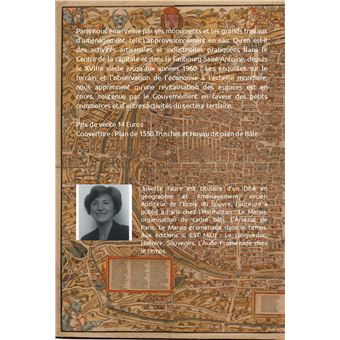 Paris nous émerveille par ses monuments et les grands travaux
d'aménagement, tels l'approvisionnement en eau. Qu'en est-il
des activités artisanales et industrielles pratiquées dans le
Centre de la capitale et dans le Faubourg Saint-Antoine, depuis
le XVIIIe siècle jusqu'aux années 1960 ? Les enquêtes sur le
terrain et l'observation de l'économie à l'échelle mondiale,
nous apprennent qu'une revitalisation des espaces est en
cours, soutenue par le Gouvernement en faveur des petits
commerces et d'autres activités du secteur tertiaire.
Prix de vente 14 Euros
Couverture : Plan de 1550 Truschet et Hoyau dit plan de Bâle
Juliette Faure est titulaire d'un DEA en
géographie et Aménagement, ancien
Auditeur de l'Ecole du Louvre, l'auteure a
publié à Paris chez l'Harmattan : Le Marais,
organisation du cadre bâti. L'Arsenal de
Paris. Le Marais promenade dans le temps.
Aux éditions : EST MIDI : Le Languedoc,
Histoire, Souvenirs. L'Aude Promenade dans
le temps.